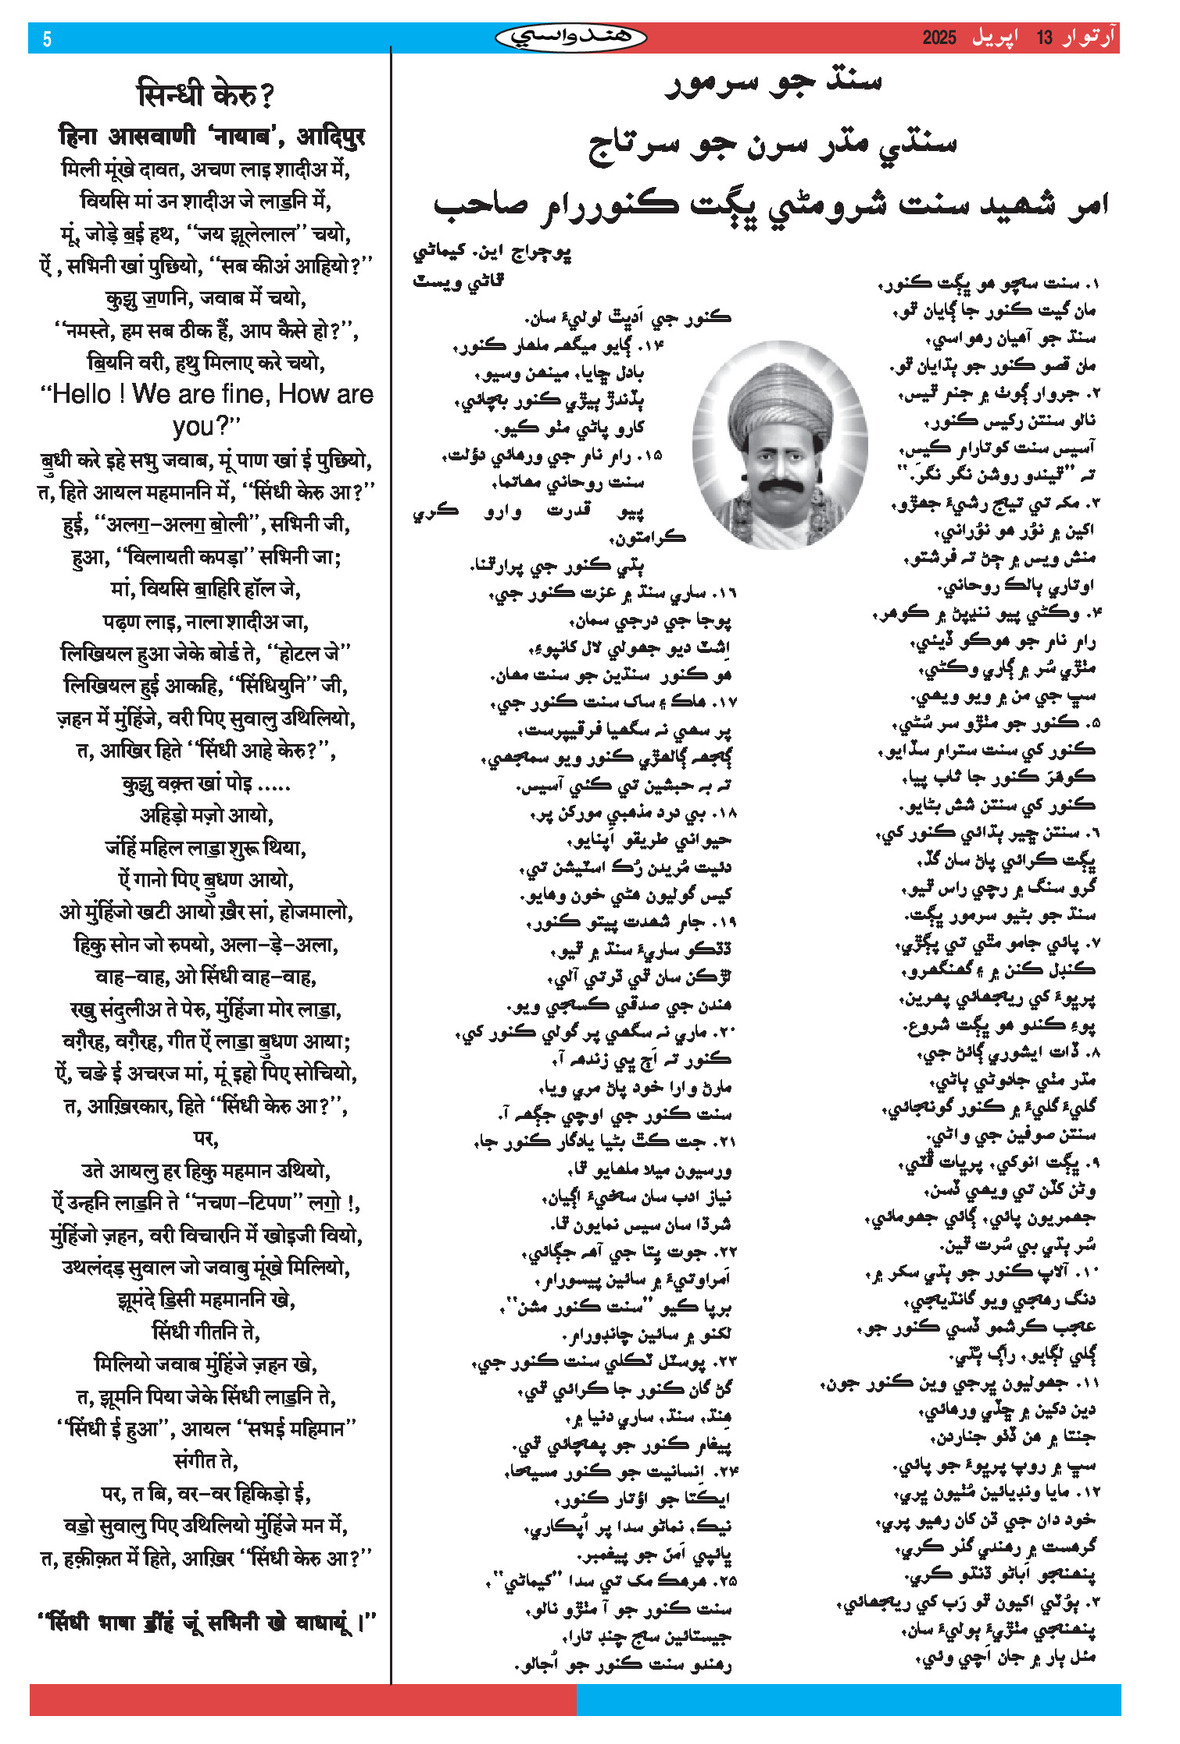 5
هندواسي
آرتوار 13 اپريل 2025
सिन्धी केरु?
हिना आसवाणी ‘नायाब’, आदिपुर
मिली मूंखे दावत, अचण लाइ शादीअ में,
वियसि मां उन शादीअ जे लाॾनि में,
मूं, जोड़े ॿई हथ, “जय झूलेलाल” चयो,
ऐं , सभिनी खां पुछियो, “सब कीअं आहियो?”
कुझु ॼणनि, जवाब में चयो,
“नमस्ते, हम सब ठीक हैं, आप कैसे हो?”,
ॿियनि वरी, हथु मिलाए करे चयो,
“Hello ! We are fine, How are
you?”
ॿुधी करे इहे सभु जवाब, मूं पाण खां ई पुछियो,
त, हिते आयल महमाननि में, “सिंधी केरु आ?”
हुई, “अलॻ-अलॻ ॿोली”, सभिनी जी,
हुआ, “विलायती कपड़ा” सभिनी जा;
मां, वियसि ॿाहिरि हॉल जे,
पढ़ण लाइ, नाला शादीअ जा,
लिखियल हुआ जेके बोर्ड ते, “होटल जे”
लिखियल हुई आकहि, “सिंधियुनि” जी,
ज़हन में मुंहिंजे, वरी पिए सुवालु उथिलियो,
त, आखिर हिते “सिंधी आहे केरु?”,
कुझु वक़्त खां पोइ .....
अहिड़ो मज़ो आयो,
जंहिं महिल लाॾा शुरू थिया,
ऐं गानो पिए ॿुधण आयो,
ओ मुंहिंजो खटी आयो ख़ैर सां, होजमालो,
हिकु सोन जो रुपयो, अला-ड़े-अला,
वाह-वाह, ओ सिंधी वाह-वाह,
रखु संदुलीअ ते पेरु, मुंहिंजा मोर लाॾा,
वग़ैरह, वग़ैरह, गीत ऐं लाॾा ॿुधण आया;
ऐं, चङे ई अचरज मां, मूं इहो पिए सोचियो,
त, आख़िरकार, हिते “सिंधी केरु आ?”,
पर,
उते आयलु हर हिकु महमान उथियो,
ऐं उन्हनि लाॾनि ते “नचण-टिपण” लॻो !,
मुंहिंजो ज़हन, वरी विचारनि में खोइजी वियो,
उथलंदड़ सुवाल जो जवाबु मूंखे मिलियो,
झूमंदे ॾिसी महमाननि खे,
सिंधी गीतनि ते,
मिलियो जवाब मुंहिंजे ज़हन खे,
त, झूमनि पिया जेके सिंधी लाॾनि ते,
“सिंधी ई हुआ”, आयल “सभई महिमान”
संगीत ते,
पर, त बि, वर-वर हिकिड़ो ई,
वॾो सुवालु पिए उथिलियो मुंहिंजे मन में,
त, हक़ीक़त में हिते, आख़िर “सिंधी केरु आ?”
“सिंधी भाषा ॾींहं जूं सभिनी खे वाधायूं ।”
سنڌ جو سرمور
سنڌي مڌر سرن جو سرتاج
امر شهيد سنت شرومڻي ڀڳت ڪنوررام صاحب
ڀوڄراج اين. ڪيماڻي
ٿاڻي ويسٽ
۱. سنت سچو هو ڀڳت ڪنور،
مان گيت ڪنور جا ڳايان ٿو،
سنڌ جو آهيان رهواسي،
مان قصو ڪنور جو ٻڌايان ٿو.
۲. جروار ڳوٺ ۾ جنم ٿيس،
نالو سنتن رکيس ڪنور،
آسيس سنت کوتارام ڪيس،
تہ ”ٿيندو روشن نگر نگر.“
۳. مکہ تي تيج رشيءَ جهڙو،
اکين ۾ نُور هو نُوراني،
منش ويس ۾ ڄڻ تہ فرشتو،
اوتاري ٻالڪ روحاني.
۴. وڪڻي پيو ننڍپڻ ۾ ڪوهر،
رام نام جو هوڪو ڏيئي،
مٺڙي سُر ۾ ڳاري وڪڻي،
سڀ جي من ۾ ويو ويهي.
۵. ڪنور جو مٺڙو سر سُڻي،
ڪنور کي سنت سترام سڏايو،
ڪوهَر ڪنور جا ٿاب پيا،
ڪنور کي سنتن شش بڻايو.
۶. سنتن ڇير ٻڌائي ڪنور کي،
ڀڳت ڪرائي پاڻ سان گڏ،
گرو سنگ ۾ رچي راس ٿيو،
سنڌ جو بڻيو سرمور ڀڳت.
۷. پائي جامو مٿي تي پڳڙي،
ڪنڊل ڪنن ۾ ۽ گهنگهرو،
پرڀوءَ کي ريجهائي پهرين،
پوءِ ڪندو هو ڀڳت شروع.
۸. ڏات ايشوري ڳائڻ جي،
مڌر مٺي جادوئي ٻاڻي،
گليءَ گليءَ ۾ ڪنور گونجائي،
سنتن صوفين جي واڻي.
۹. ڀڳت انوکي، پرڀات ڦٽي،
وڻن ڪلن تي ويهي ڏسن،
جهمريون پائي، ڳائي جهومائي،
سُر ٻڌي بي سُرت ٿين.
۱۰. آلاپ ڪنور جو ٻڌي سکر ۾،
دنگ رهجي ويو گانڌيجي،
عجب ڪرشمو ڏسي ڪنور جو،
ڳلي لڳايو، راڳ ٻڌي.
۱۱. جهوليون ڀرجي وين ڪنور جون،
دين دکين ۾ ڇڏي ورهائي،
جنتا ۾ هن ڏٺو جناردن،
سڀ ۾ روپ پرڀوءَ جو پائي.
۱۲. مايا ونڊيائين مُٺيون ڀري،
خود دان جي ڌن کان رهيو پري،
گرهست ۾ رهندي گذر ڪري،
پنهنجو اَباڻو ڌنڌو ڪري.
۳. ٻوُٽي اکيون ٿو رَب کي ريجهائي،
پنهنجي مٺڙيءَ ٻوليءَ سان،
مئل ٻار ۾ جان اَچي وئي،
ڪنور جي اَڊيٺ لوليءَ سان.
۱۴. ڳايو ميگهہ ملهار ڪنور،
بادل ڇايا، مينهن وسيو،
ٻڏندڙ ٻيڙي ڪنور بچائي،
کارو پاڻي مٺو ڪيو.
۱۵. رام نام جي ورهائي دؤلت،
سنت روحاني مهاتما،
پيو قدرت وارو ڪري
ڪرامتون،
ٻڌي ڪنور جي پرارٿنا.
۱۶. ساري سنڌ ۾ عزت ڪنور جي،
پوجا جي درجي سمان،
اِشٽ ديو جهولي لال کانپوءِ،
هو ڪنور سنڌين جو سنت مهان.
۱۷. هاڪ ۽ ساک سنت ڪنور جي،
پر سهي نہ سگهيا فرقيپرست،
ڳجهہ ڳالهڙي ڪنور ويو سمجهي،
تہ بہ حبشين تي ڪئي آسيس.
۱۸. بي درد مذهبي مورکن پر،
حيواني طريقو اَپنايو،
دئيت مُريدن رُڪ اسٽيشن تي،
ڪيس گوليون هڻي خون وهايو.
۱۹. جام شهدت پيتو ڪنور،
ڌڌڪو ساريءَ سنڌ ۾ ٿيو،
لڙڪن سان ٿي ڌرتي آلي،
هندن جي صدقي ڪسجي ويو.
۲۰. ماري نہ سگهي پر گولي ڪنور کي،
ڪنور تہ اَڄ ڀي زندهہ آ،
مارڻ وارا خود پاڻ مري ويا،
سنت ڪنور جي اوچي جڳهہ آ.
۲۱. جت ڪٿ بڻيا يادگار ڪنور جا،
ورسيون ميلا ملهايو ٿا،
نياز ادب سان سخيءَ اڳيان،
شرڌا سان سيس نمايون ٿا.
۲۲. جوت پِتا جي آهہ جڳائي،
اَمراوتيءَ ۾ سائين پيسورام،
برپا ڪيو ”سنت ڪنور مشن“،
لکنو ۾ سائين چانڊورام.
۲۳. پوسٽل ٽڪلي سنت ڪنور جي،
گڻ گان ڪنور جا ڪرائي ٿي،
هِند، سنڌ، ساري دنيا ۾،
پيغام ڪنور جو پهچائي ٿي.
۲۴. اِنسانيت جو ڪنور مسيحا،
ايڪتا جو اؤتار ڪنور،
نيڪ، نماڻو سدا پر اُپڪاري،
ڀائپي اَمنَ جو پيغمبر.
۲۵. هرهڪ مک تي سدا ”ڪيماڻي“،
سنت ڪنور جو آ مٺڙو نالو،
جيستائين سج چنڊ تارا،
رهندو سنت ڪنور جو اُجالو.